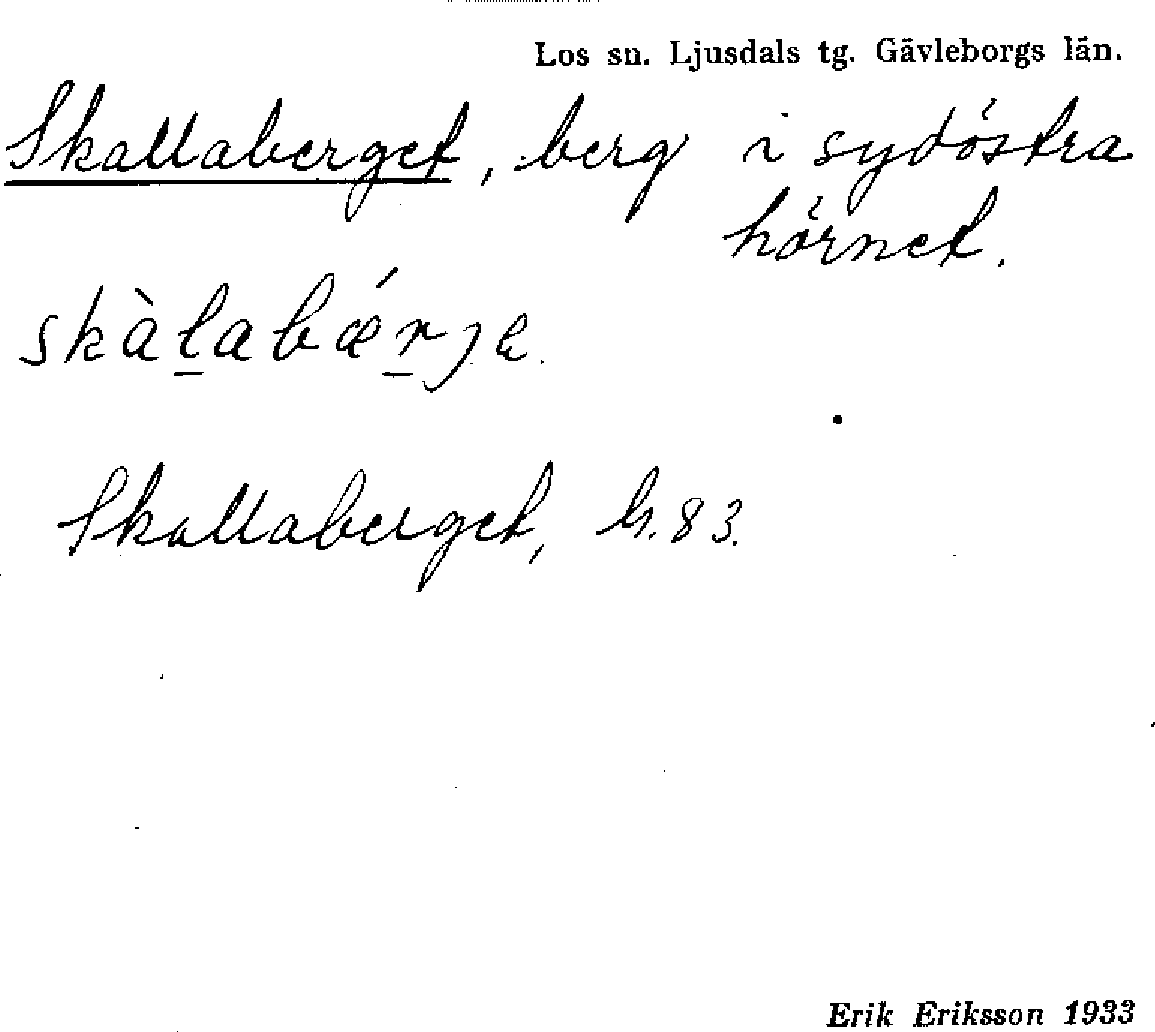 Los sn. Ljusdals tg. Gävleborgs län.
Skallaberget, berg i sydöstra
hörnet.
skàl̠abǽr̠je.
Skallaberget, 83.
Erik Eriksson 1933